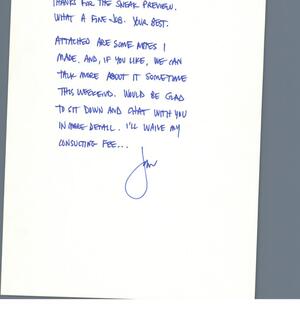 THANKS FOR THE SNEAK PREVIEW.
WHAT A FINE JOB. YOUR BEST.
ATTACHED ARE SOME NOTES I
MADE. AND, IF YOU LIKE, WE CAN
TALK MORE ABOUT IT SOMETIME
THIS WEEKEND. WOULD BE GLAD
TO SIT DOWN AND CHAT WITH YOU
IN MORE DETAIL. I'LL WAIVE MY
CONSULTING FEE...